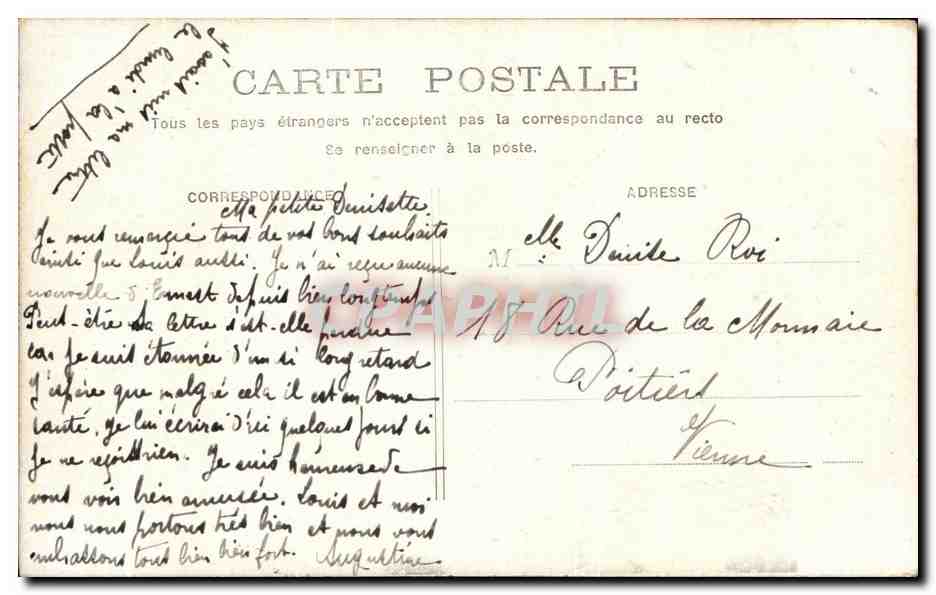 J'avais mis ma lettre
le lundi à la poste
CARTE POSTALE
Tous les pays étrangers n'acceptent pas la correspondance au recto
Se renseigner à la poste.
CORRESPONDANCE
Ma petite Denisette.
Je vous remercie tous de vos bons souhaits
ainsi que Louis aussi. Je n'ai reçu aucune
nouvelle d'Ernest depuis bien longtemps
Peut-être sa lettre s'est-elle perdue
car je suis étonnée d'un si long retard
J'espère que malgré cela il est en bonne
santé, je lui écrirai d'ici quelques jours si
je ne reçois rien. Je suis heureuse de
vous voir bien amusée. Louis et moi
nous nous portons très bien et nous vous
embrassons tous bien bien fort. Augustine
ADRESSE
Mlle Denise Roi
18 Rue de la Monnaie
Poitiers
Vienne
CPAPHIL